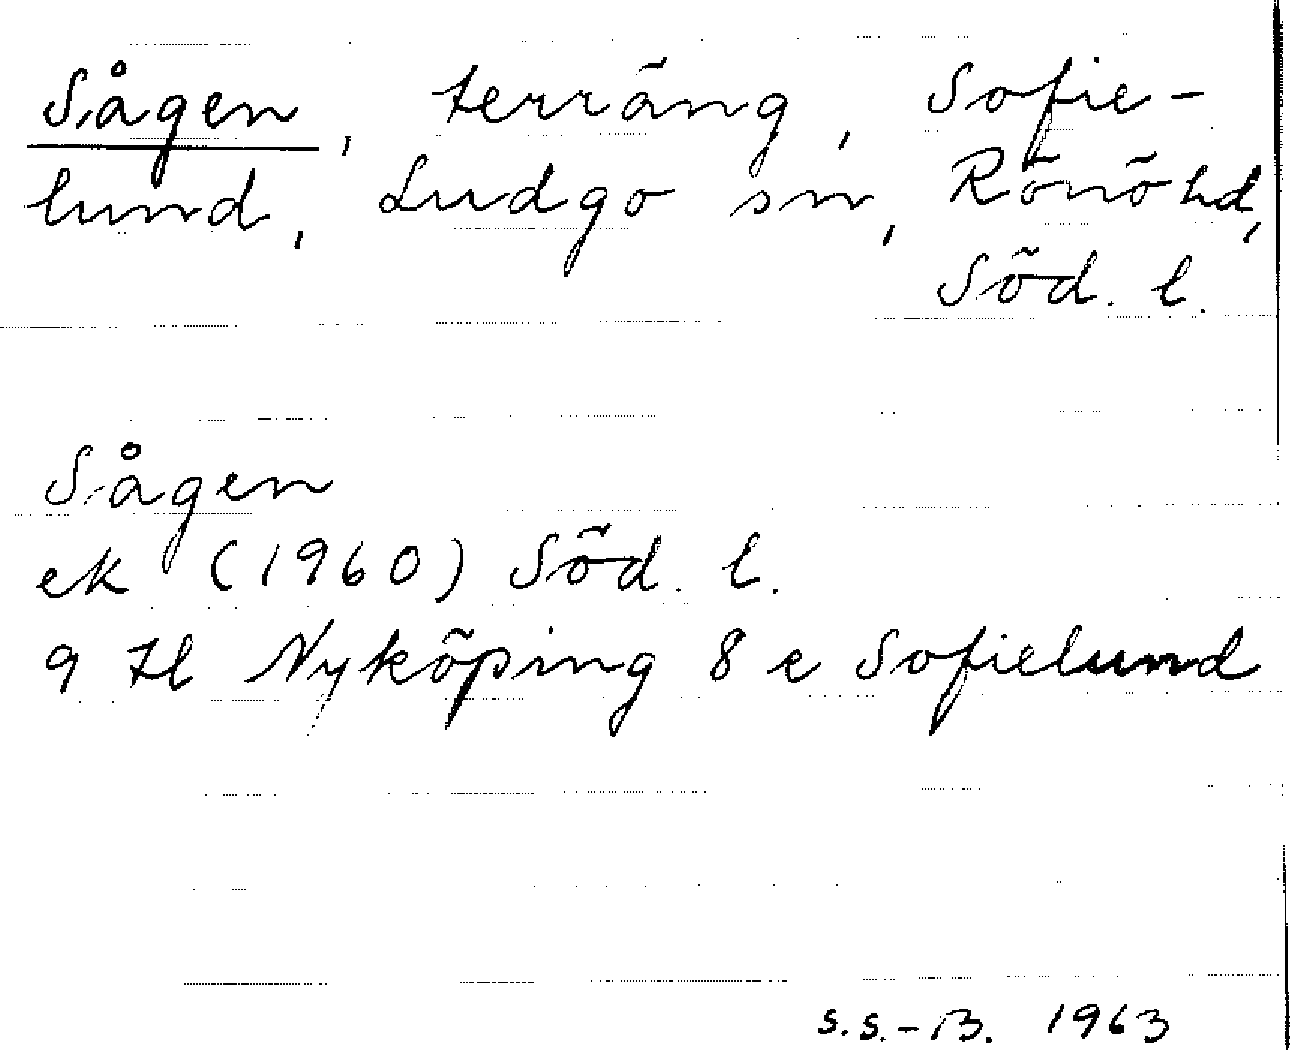 Sågen, terräng, Sofie-
lund, Ludgo sn, Rönöhd,
Söd. l.
Sågen
ek (1960) Söd. l.
9 H Nyköping 8 e Sofielund
S.S.-B. 1963